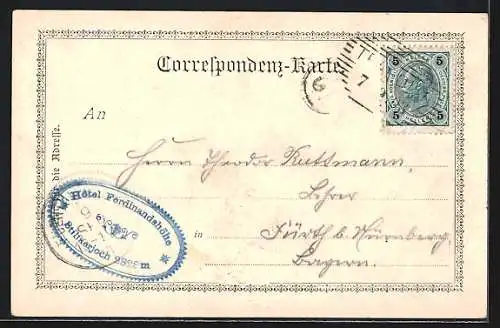 Correspondenz-Karte
An
Herrn Theodor Kuttmann,
Lehrer
in Fürth b. Nürnberg,
Bayern.
die Adresse.
Hôtel Ferdinandshöhe
Stilfserjoch
5 5
5 5
7